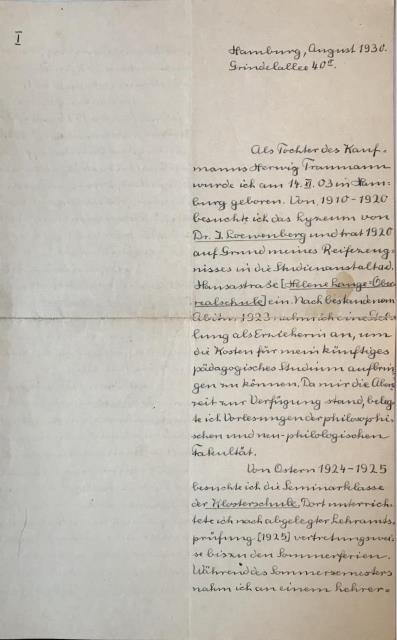 I
Hamburg, August 1930.
Grindelallee 40II.
Als Tochter des Kauf-
manns Herwig Traumann
wurde ich am 14. VI. 03 in Ham-
burg geboren. Von 1910-1920
besuchte ich das Lyzeum von
Dr. J. Loewenberg und trat 1920
auf Grund meines Reifezeug-
nisses in die Studienanstalt a.d.
Hansastraße [Helene Lange-Ober-
realschule] ein. Nach bestandenem
Abitur 1923 nahm ich eine Stel-
lung als Erzieherin an, um
die Kosten für mein künftiges
pädagogisches Studium aufbrin-
gen zu können. Da mir die Abend-
zeit zur Verfügung stand, beleg-
te ich Vorlesungen der philosophi-
schen und neu-philologischen
Fakultät.
Von Ostern 1924-1925
besuchte ich die Seminarklasse
der Klosterschule. Dort unterrich-
tete ich nach abgelegter Lehramts-
prüfung [1925] vertretungswei-
se bis zu den Sommerferien.
Während des Sommersemesters
nahm ich an einem Lehrer-